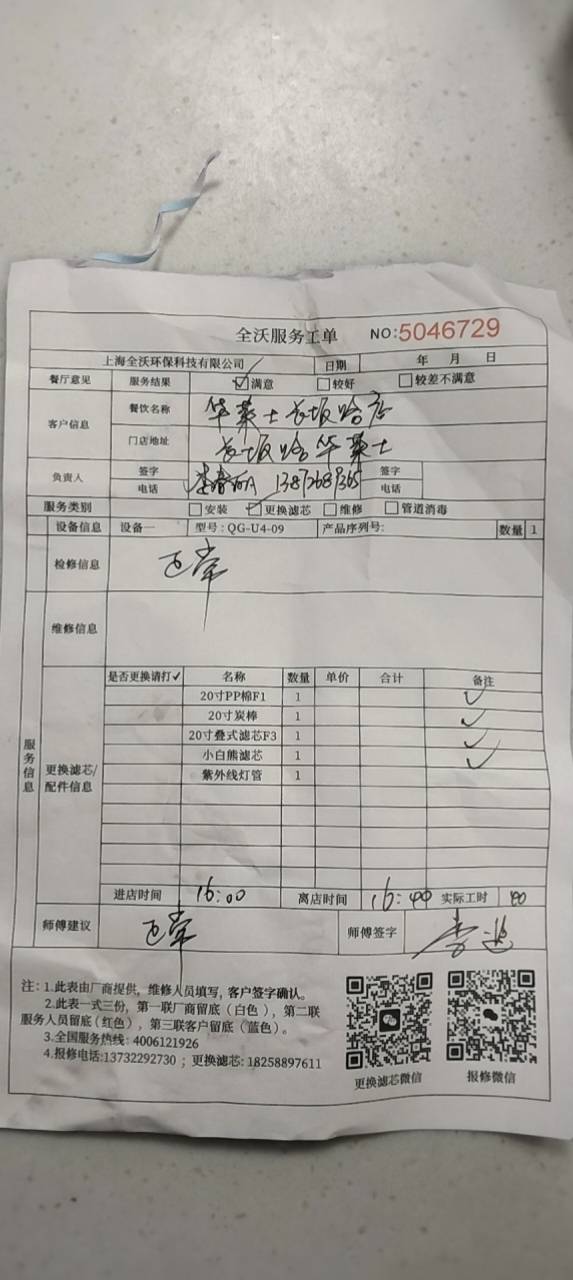 全沃服务工单 NO:5046729
上海全沃环保科技有限公司 日期 年 月 日
餐厅意见 服务结果 ☑满意 □较好 □较差不满意
客户信息 餐饮名称 华莱士长坂路店
门店地址 长坂路华莱士
负责人 签字 签字
电话 电话
服务类别 □安装 ☑更换滤芯 □维修 □管道消毒
设备信息 设备一 型号:QG-U4-09 产品序列号: 数量 1
检修信息 正常
维修信息
服务信息
更换滤芯/配件信息
是否更换请打✓ 名称 数量 单价 合计 备注
20寸PP棉F1 1 ✓
20寸炭棒 1 ✓
20寸叠式滤芯F3 1 ✓
小白熊滤芯 1 ✓
紫外线灯管 1
进店时间 16:00 离店时间 16:40 实际工时 40
师傅建议 正常 师傅签字
注: 1.此表由厂商提供，维修人员填写, 客户签字确认。
2.此表一式三份，第一联厂商留底（白色），第二联
服务人员留底(红色)，第三联客户留底（蓝色）。
3.全国服务热线: 4006121926
4.报修电话:13732292730 ; 更换滤芯: 18258897611
更换滤芯微信 报修微信